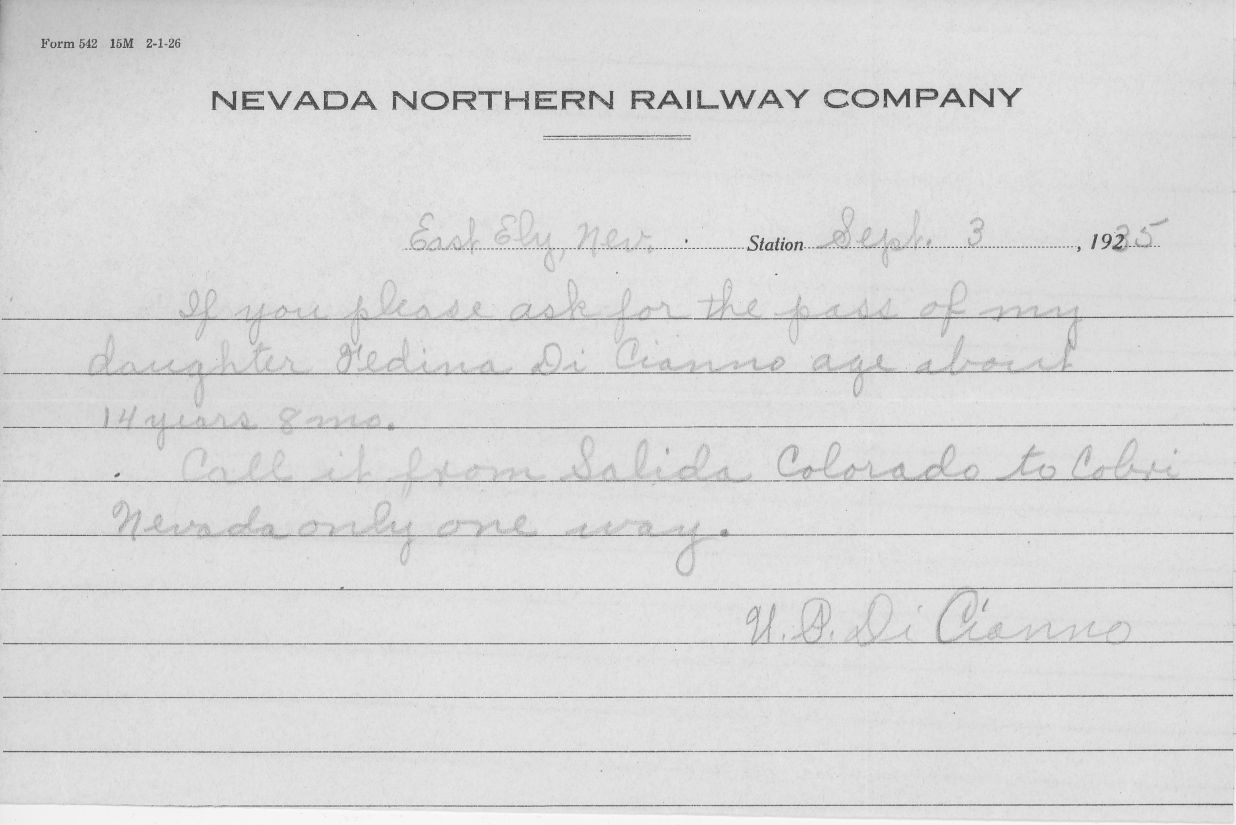 Form 542 15M 2-1-26
NEVADA NORTHERN RAILWAY COMPANY
East Ely, Nev. Station Sept. 3, 1935
If you please ask for the pass of my
daughter Fedina Di Cianno age about
14 years 8 mo.
Call it from Salida Colorado to Cobri
Nevada only one way.
U. P. Di Cianno